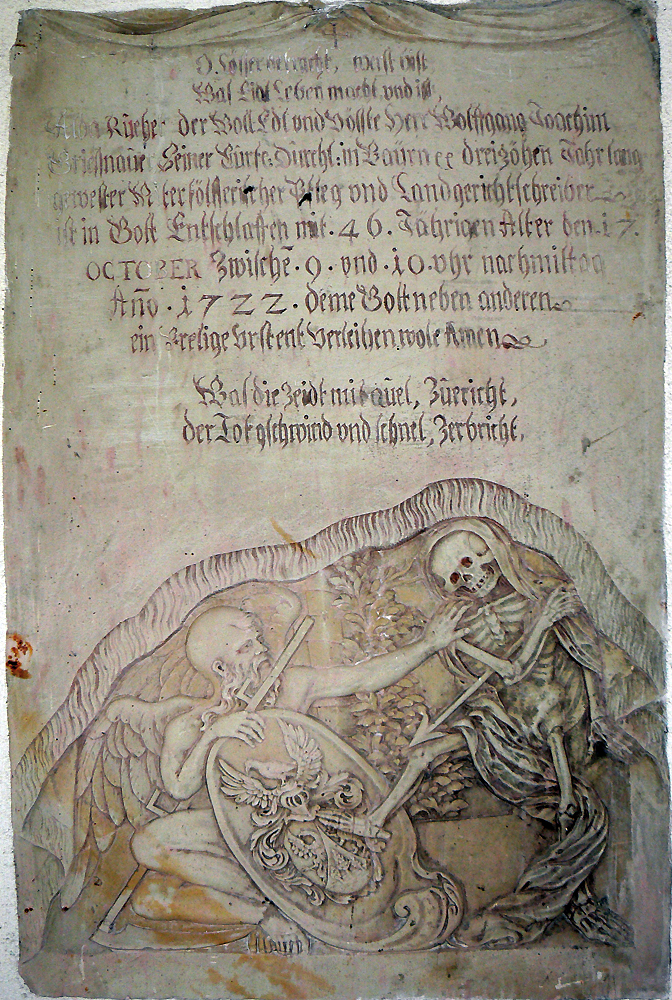 O Leser betracht, was du bist
Was Edl Leben macht und ist,
Alhir Ruehet der Woll Edl und Vösste Herr Wolffgang Joachim
Seiner Curfr: Durchl: in Bäürn ec dreizöhen Jahr lang
gewester Pfleg und Landgerichtschreiber
ist in Gott Entschlaffen mit . 46 . Jährigen Alter den . 17 .
OCTOBER Zwischē . 9 . und . 10 . uhr nachmittag
Año . 1722 . deme Gott neben anderen
ein Seelige Urstent Verleihen wole Amen
Was die Zeidt mit qüel, Züericht,
der Tot gschwind und schnel, Zerbricht.